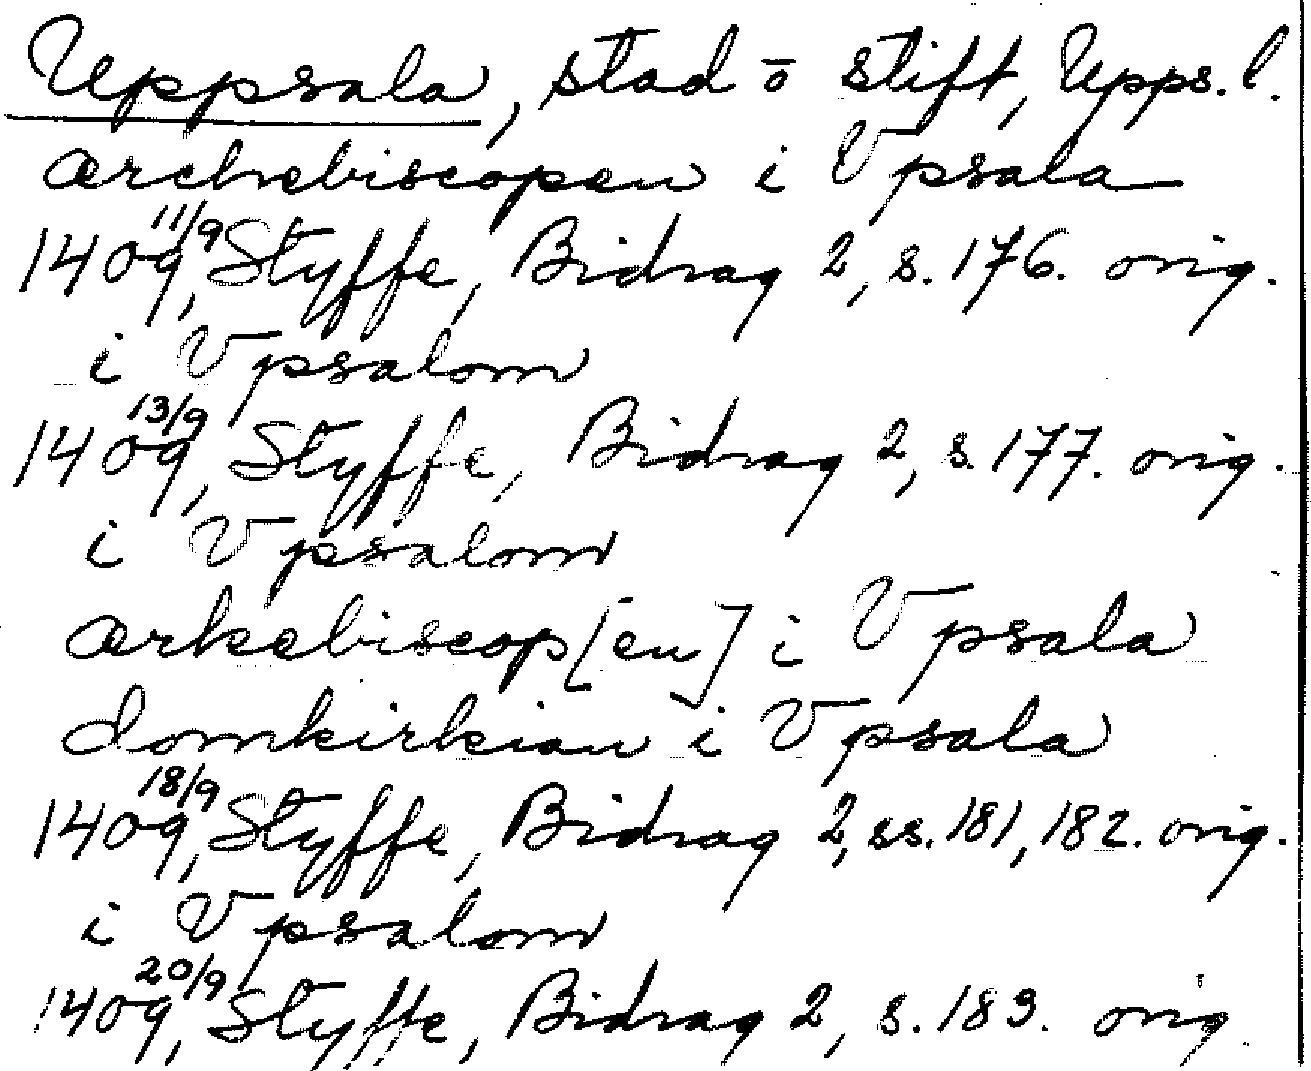 Uppsala, stad o stift, Upps. l.
ærchebiscopen i Vpsala
1409 11/9, Styffe, Bidrag 2, s. 176. orig.
i Vpsalom
1409 13/9, Styffe, Bidrag 2, s. 177. orig.
i Vpsalom
ærkebiscop[en] i Vpsala
domkirkian i Vpsala
1409 18/9, Styffe, Bidrag 2, ss. 181, 182. orig.
i Vpsalom
1409 20/9, Styffe, Bidrag 2, s. 183. orig